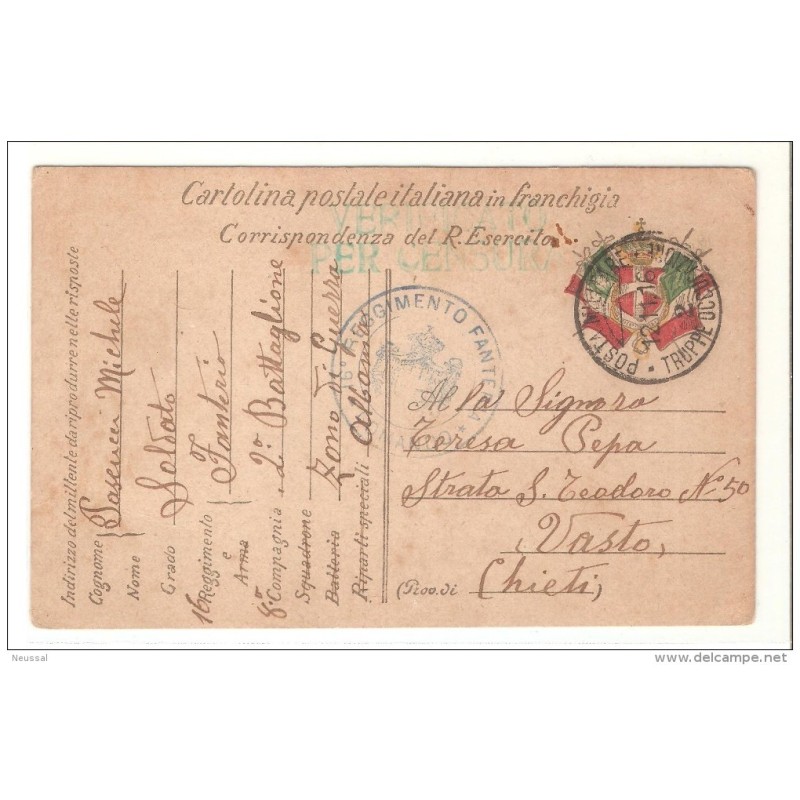 Cartolina postale italiana in franchigia
VERIFICATO
PER CENSURA
Corrispondenza del R. Esercito
Indirizzo del mittente da riprodurre nelle risposte
Cognome Michele
Nome
Grado Soldato
16 Reggimento Fanteria
e
Arma
8ª Compagnia, 2º Battaglione
Squadrone
Batteria Zona di Guerra
Riparti speciali Albania
16º REGGIMENTO FANTERIA
POSTA MILITARE
TRUPPE OCCUPAZIONE
Alla Signora
Teresa Pepa
Strata S. Teodoro Nº 50
Vasto,
(Prov. di Chieti)
Neussal
www.delcampe.net